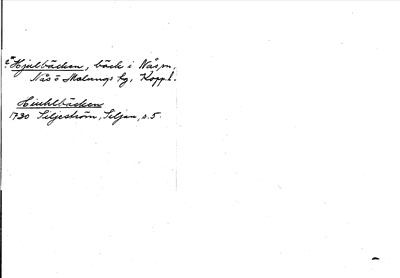 Hjulbäcken, bäck i Nås sn,
Nås o Malungs fg, Koppl.
Hiuhlbäcken
1730 Siljeström, Siljan, s. 5.